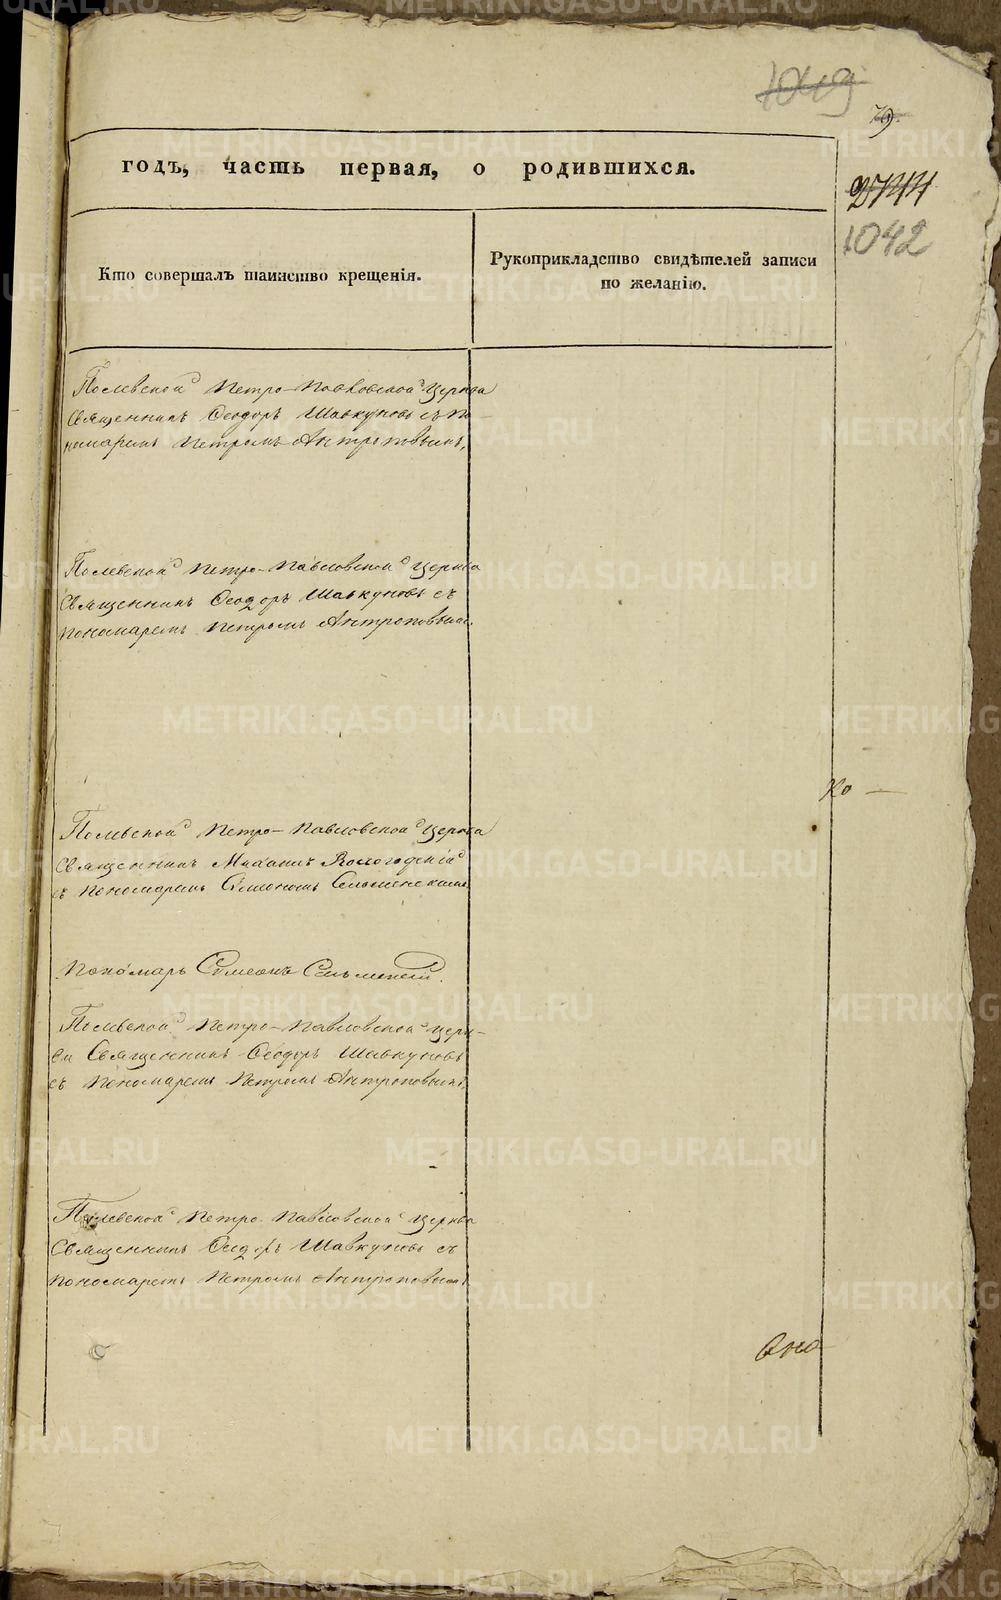 1049
79.
годъ, часть первая, о родившихся.
2144
1042
Кто совершалъ таинство крещенія.
Рукоприкладство свидѣтелей записи
по желанію.
Полевской Петро-Павловской Церкви
Священникъ Ѳеодоръ Шавкуновъ съ по-
номаремъ Петромъ Антроповымъ.
Полевской Петро-Павловской Церкви
Священникъ Ѳеодоръ Шавкуновъ съ
пономаремъ Петромъ Антроповымъ.
Ко —
Полевской Петро-Павловской Церкви
Священникъ Михаилъ Вологодскій
съ пономаремъ Симеономъ
Пономарь Симеонъ
Полевской Петро-Павловской Церк-
ви Священникъ Ѳеодоръ Шавкуновъ
съ Пономаремъ Петромъ Антроповымъ.
Полевской Петро-Павловской Церкви
Священникъ Ѳеодоръ Шавкуновъ съ
пономаремъ Петромъ Антроповымъ.
Оно
METRIKI.GASO-URAL.RU